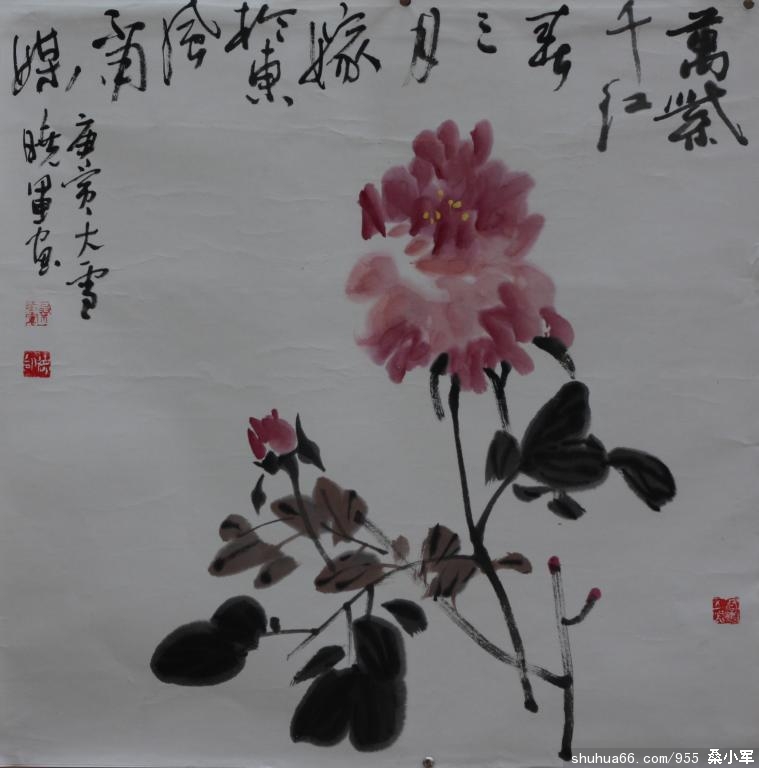 萬紫
千红
春
三
月
嫁
於東
風
不用
媒
庚寅大雪
曉軍画
shuhua66.com/955 桑小军